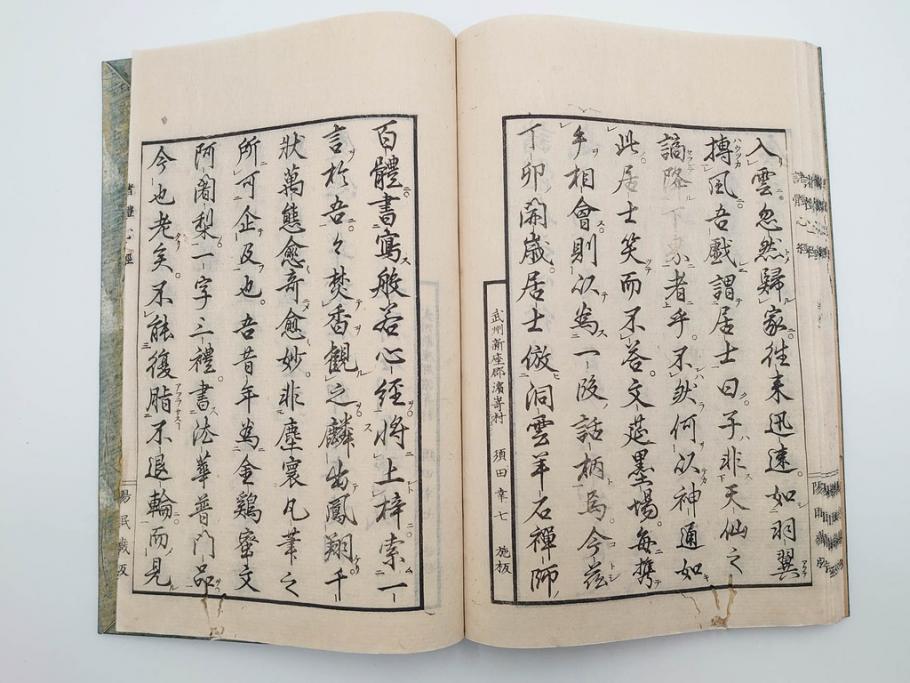 入雲忽然歸家往来迅速如羽翼
搏風吾戯謂居士曰子非天仙之
謫降下界者乎不然何以神通如
此居士笑而不答文莚墨場每携
手相會則以為一段話柄焉今茲
丁卯開歲居士倣洞雲羊石禪師
武州新座郡濱嵜村 須田幸七 施板
百體書寫般若心經將上梓索一
言於吾々焚香觀之麟出鳳翔千
狀萬態愈奇愈妙非塵寰凡筆之
所可企及也吾昔年為金鷄蜜文
阿闍梨一字三禮書法華普門品
今也老矣不能復脂不退輪而見